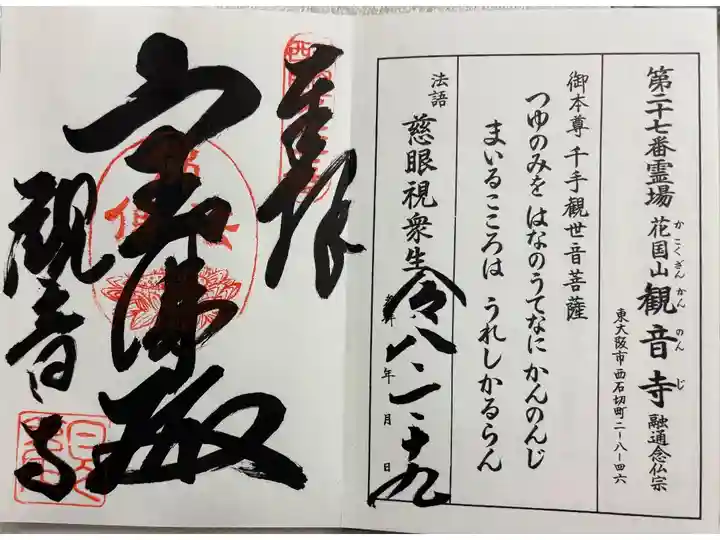 第二十七番霊場 花国山 観音寺 融通念仏宗
かこくざん かんのんじ
東大阪市西石切町二ー八ー四六
御本尊 千手観世音菩薩
つゆのみを はなのうてなに かんのんじ
まいるこころは うれしかるらん
法語 慈眼視衆生
令八 二 十九
年 月 日
奉拝
観音寺